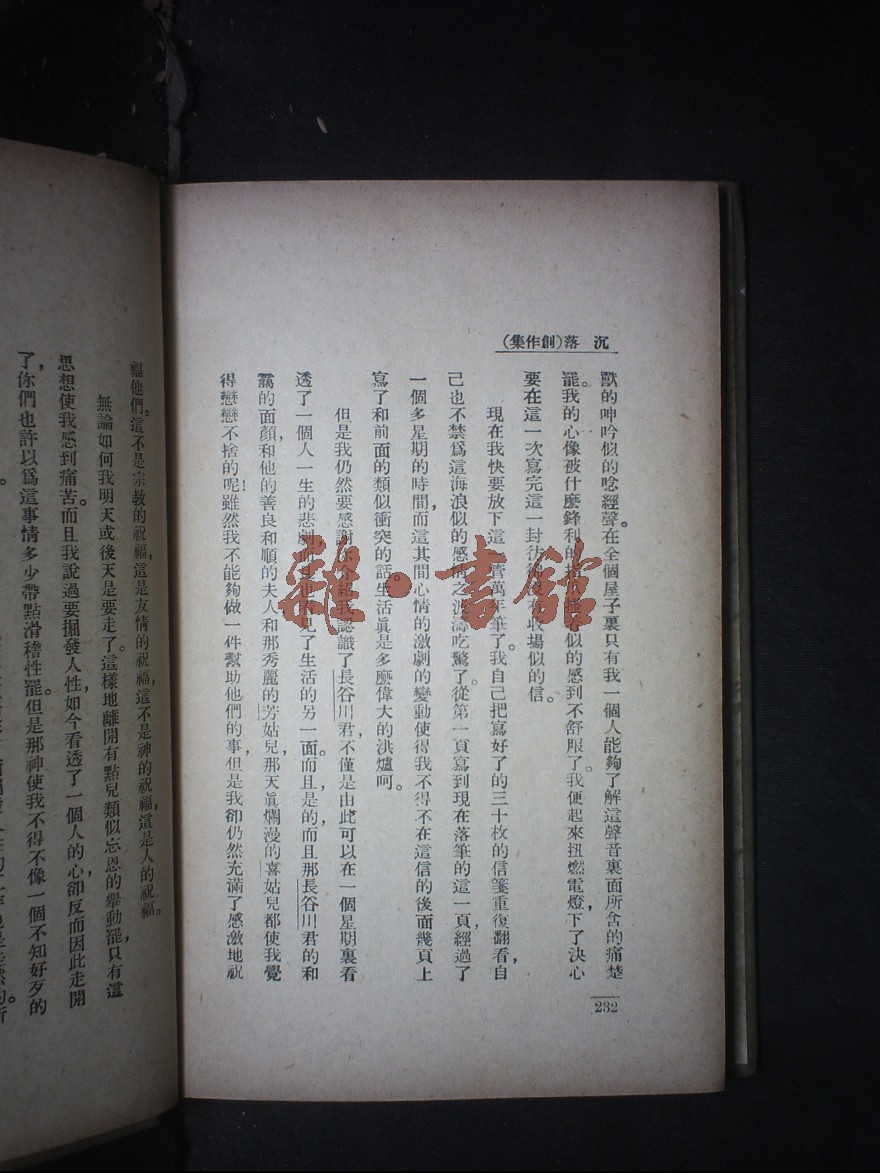 沉 落(創作集)
獸的呻吟似的唸經聲。在全個屋子裏只有我一個人能夠了解這聲音裏面所含的痛楚
罷。我的心像被什麼鋒利的似的感到不舒服了。我便起來扭燃電燈，下了決心
要在這一次寫完這一封收場似的信。
現在我快要放下這管萬年筆了。我自己把寫好了的三十枚的信箋重復翻看，自
己也不禁爲這海浪似的感情之波濤吃驚了。從第一頁寫到現在落筆的這一頁經過了
一個多星期的時間，而這其間心情的激劇的變動使得我不得不在這信的後面幾頁上
寫了和前面的類似衝突的話。生活眞是多麼偉大的洪爐呵。
但是我仍然要感謝你介紹我認識了長谷川君，不僅是由此可以在一個星期裏看
透了一個人一生的悲劇，而且也看見了生活的另一面。而且是的，而且那長谷川君的和
靄的面顏，和他的善良和順的夫人和那秀麗的芳姑兒，那天眞爛漫的喜姑兒都使我覺
得戀戀不捨的呢！雖然我不能夠做一件幫助他們的事，但是我卻仍然充滿了感激地祝
232
福他們。這不是宗教的祝福，這是友情的祝福，這不是神的祝福，這是人的祝福。
無論如何我明天或後天是要走了。這樣地離開有點兒類似忘恩的舉動罷，只有這
思想使我感到痛苦。而且我說過要掘發人性，如今看透了一個人的心卻反而因此走開
了，你們也許以爲這事情多少帶點滑稽性罷。但是那神使我不得不像一個不知好歹的
龍·書館